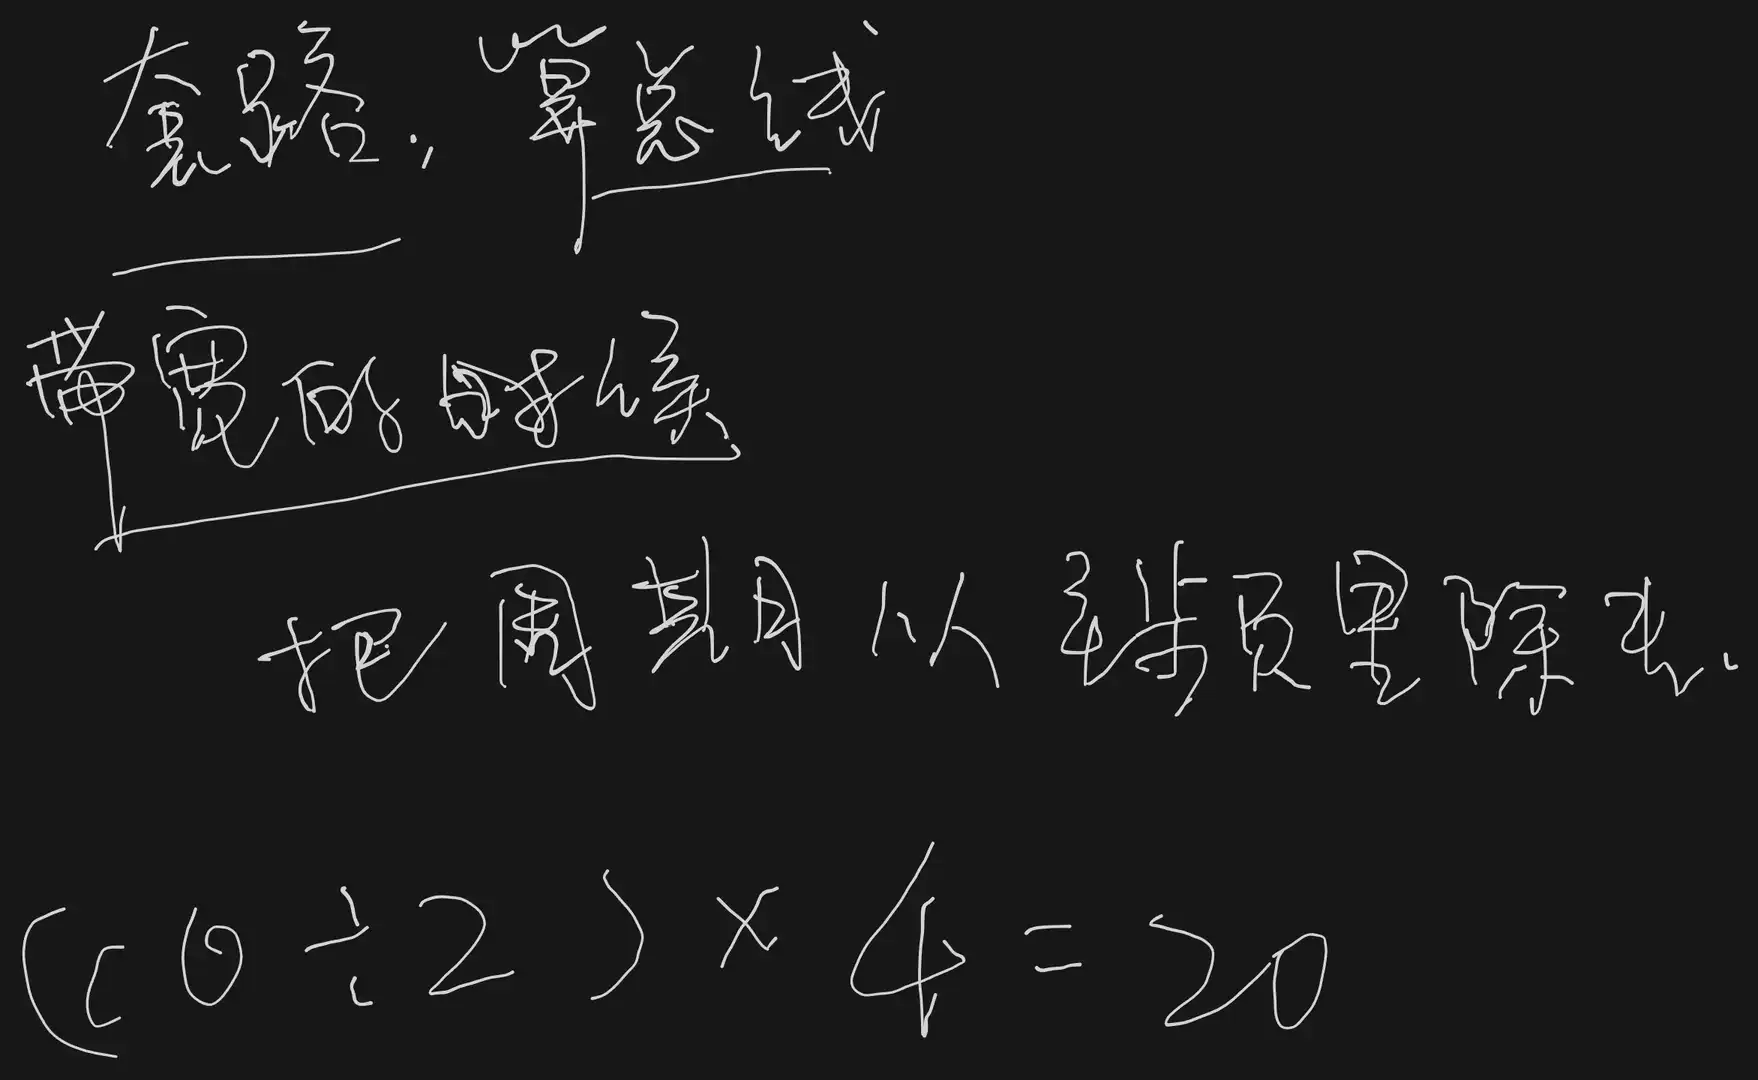 套路，算总线
带宽的时候
把周期从主频里除去.
(10÷2)×4=20